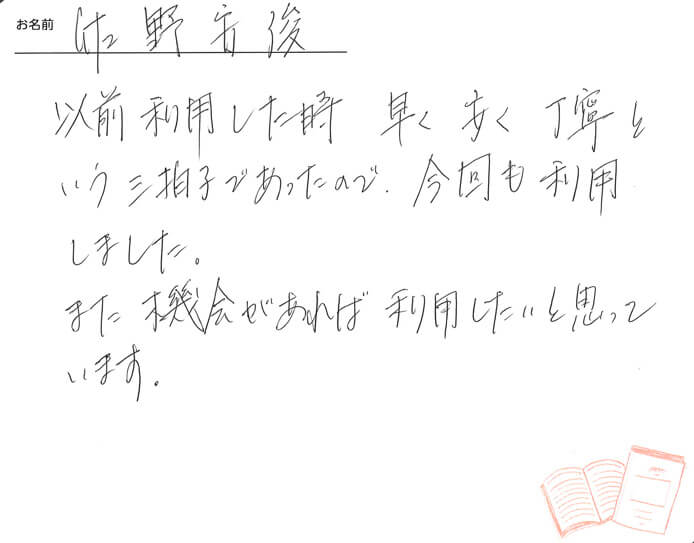 お名前 佐野吉俊
以前利用した時 早く 安く 丁寧と
いう三拍子であったので、今回も利用
しました。
また機会があれば利用したいと思って
います。